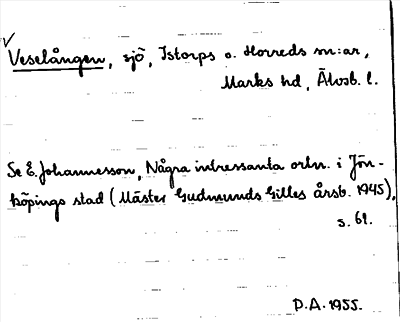 Veselången, sjö, Istorps o. Horreds sn:ar,
Marks hd, Älvsb. l.
Se E. Johannesson, Några intressanta ortn. i Jön-
köpings stad (Mäster Gudmunds Gilles årsb. 1945),
s. 61.
P.A. 1955.